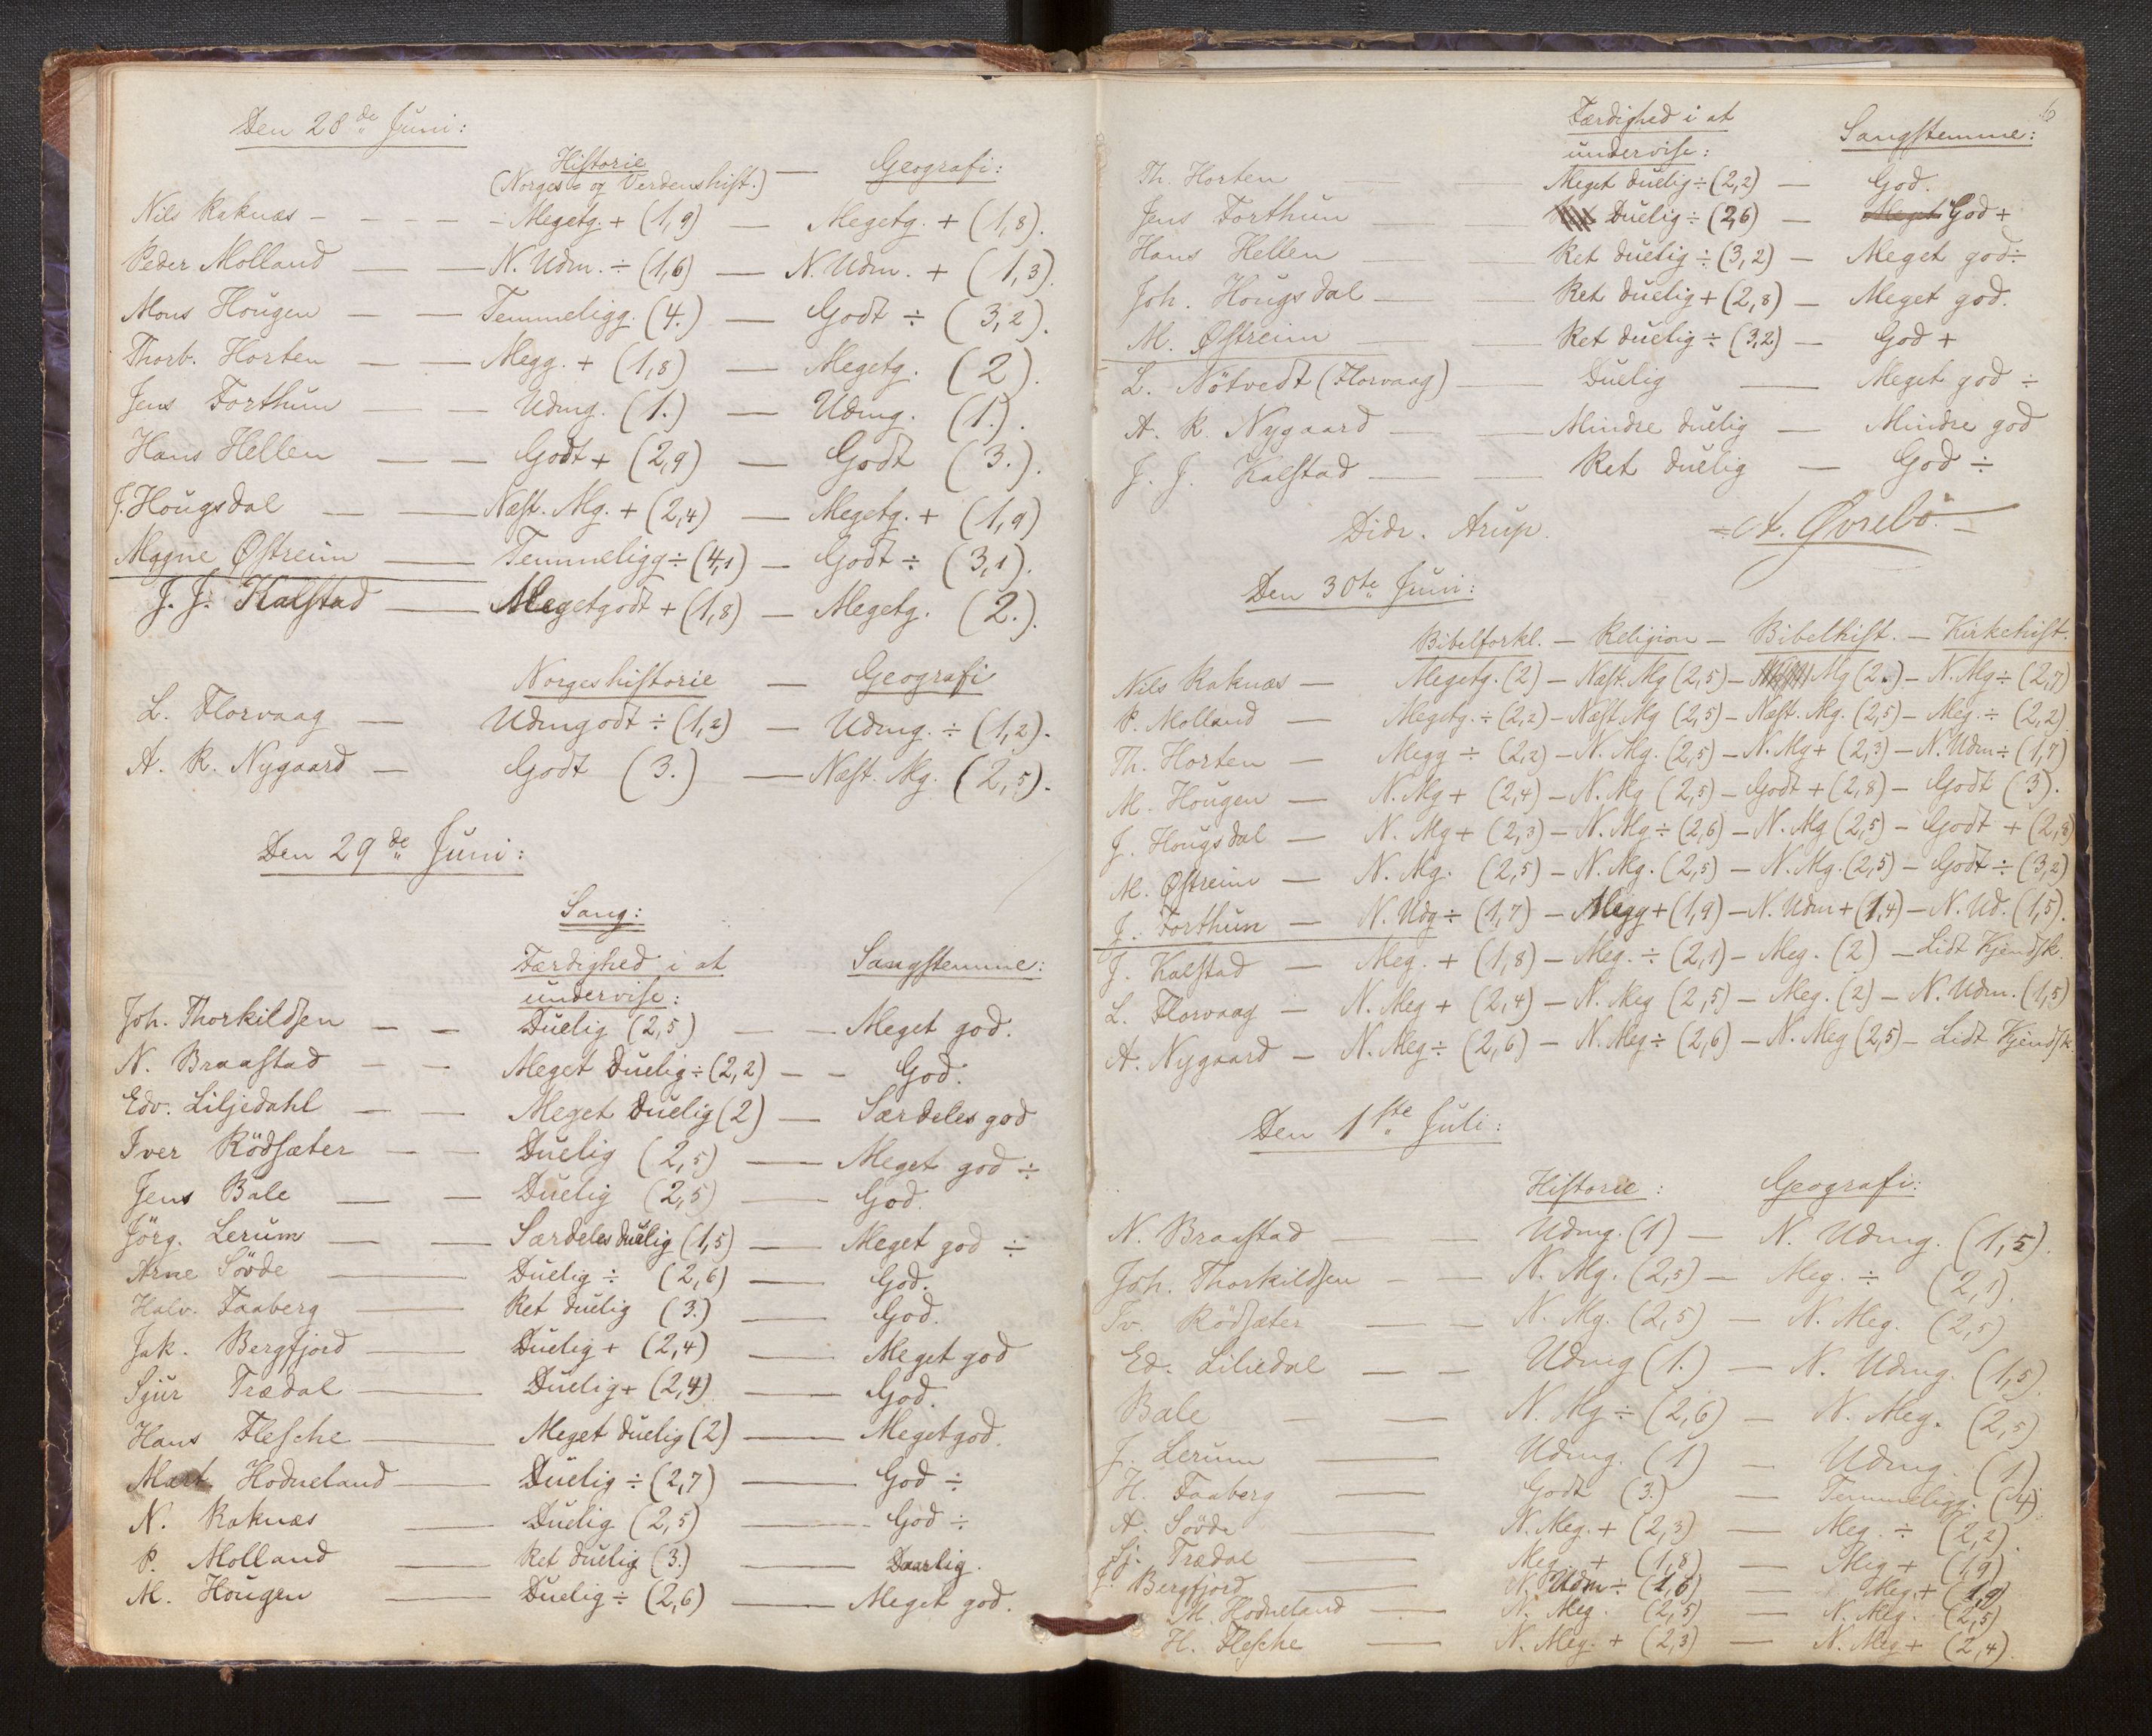 Den 28de Juni:
Historie — Geografi:
(Norges- og Verdenshist.)
Nils Raknæs - - - - - Megetg. + (1,9) — Megetg. + (1,8).
Peder Molland — — N. Udm. ÷ (1,6) — N. Udm. + (1,3).
Mons Hougen — — Temmeligg. (4.) — Godt ÷ (3,2).
Thorb. Horten — — Megg. + (1,8) — Megetg. (2).
Jens Forthun — — Udmg. (1.) — Udmg. (1.).
Hans Hellen — — Godt + (2,9) — Godt (3.).
J. Hougsdal — — Næst. Mg. + (2,4) — Megetg. + (1,9)
Magne Østreim — Temmeligg ÷ (4,1) — Godt ÷ (3,1).
J. J. Kalstad — Megetgodt + (1,8) — Megetg. (2.).
Norgeshistorie — Geografi
L. Florvaag — Udmgodt ÷ (1,2) — Udmg. ÷ (1,2).
A. R. Nygaard — Godt (3.) — Næst. Mg. (2,5).
Den 29de Juni:
Sang:
Færdighed i at Sangstemme:
undervise:
Joh. Thorkildsen — — Duelig (2,5) — — Meget god.
N. Braastad — — Meget Duelig ÷ (2,2) — — God.
Edv. Liljedahl — — Meget Duelig (2) — Særdeles god
Iver Rödsæter — — Duelig (2,5) — Meget god ÷
Jens Bale — — Duelig (2,5) — God.
Jörg. Lerum — — Særdeles duelig (1,5) — Meget god ÷
Arne Sövde — Duelig ÷ (2,6) — God.
Halv. Faaberg — Ret duelig (3.) — God.
Jak. Bergfjord — Duelig + (2,4) — Meget god
Sjur Trædal — Duelig + (2,4) — God.
Hans Flesche — Meget duelig (2) — Megetgod.
Mart. Hodneland — Duelig ÷ (2,7) — God ÷
N. Raknæs — Duelig (2,5) — God ÷
P. Molland — Ret duelig (3.) — Daarlig.
M. Hougen — Duelig ÷ (2,6) — Meget god.
6
Færdighed i at Sangstemme:
undervise:
Th. Horten — — Meget duelig ÷ (2,2) — God.
Jens Forthun — — Duelig ÷ (2,6) — Meget God +
Hans Hellen — — Ret duelig ÷ (3,2) — Meget god ÷
Joh. Hougsdal — — Ret duelig + (2,8) — Meget god.
M. Østreim — — Ret duelig ÷ (3,2) — God +
L. Nötvedt (Florvaag) — Duelig — Meget god ÷
A. R. Nygaard — — Mindre duelig — Mindre god
J. J. Kalstad — — Ret duelig — God ÷
Didr. Arup. A. Øvrebö.
Den 30te Juni:
Bibelforkl. — Religion — Bibelhist. — Kirkehist.
Nils Raknæs — Megetg. (2) — Næst. Mg (2,5) — Mg (2.) — N. Mg ÷ (2,7)
P. Molland — Megetg. ÷ (2,2) — Næst. Mg (2,5) — Næst. Mg. (2,5) — Meg. ÷ (2,2)
Th. Horten — Megg ÷ (2,2) — N. Mg. (2,5) — N. Mg + (2,3) — N. Udm ÷ (1,7)
M. Hougen — N. Mg + (2,4) — N. Mg (2,5) — Godt + (2,8) — Godt (3).
J. Hougsdal — N. Mg + (2,3) — N. Mg ÷ (2,6) — N. Mg (2,5) — Godt + (2,8)
M. Østreim — N. Mg. (2,5) — N. Mg. (2,5) — N. Mg. (2,5) — Godt ÷ (3,2)
J. Forthun — N. Udg ÷ (1,7) — Megg + (1,9) — N. Udm + (1,4) — N. Ud. (1,5).
J. Kalstad — Meg. + (1,8) — Meg. ÷ (2,1) — Meg. (2) — Lidt Kjendsk.
L. Florvaag — N. Meg + (2,4) — N. Meg (2,5) — Meg. (2) — N. Udm. (1,5)
A. Nygaard — N. Meg ÷ (2,6) — N. Meg ÷ (2,6) — N. Meg (2,5) — Lidt Kjendsk.
Den 1ste Juli:
Historie: Geografi:
N. Braastad — Udmg. (1) — N. Udmg. (1,5).
Joh. Thorkildsen — — N. Mg. (2,5) — Meg. ÷ (2,1).
Iv. Rödsæter — — N. Mg. (2,5) — N. Meg. (2,5)
Ed. Liliedal — — Udmg (1.) — N. Udmg. (1,5).
Bale — — N. Mg ÷ (2,6) — N. Meg. (2,5)
J. Lerum — Udmg. (1) — Udmg. (1)
H. Faaberg — Godt (3.) — Temmeligg. (4).
A. Sövde — N. Meg. + (2,3) — Meg. ÷ (2,2).
Sj. Trædal — Meg. + (1,8) — Meg + (1,9)
J. Bergfjord — N. Udm ÷ (1,6) — Meg. + (1,9)
M. Hodneland — N. Meg. (2,5) — N. Meg. (2,5)
H. Flesche — N. Meg. + (2,3) — N. Meg + (2,4).